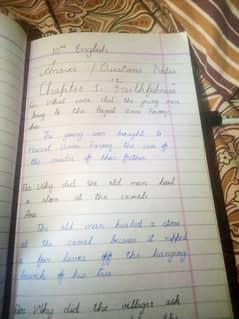 10th English
Answer / Questions Notes
Chapter 1: Faithfulness
Qs: What case did the young men
bring to the Hazrat Umar Farooq
Ans
The young men brought to
Hazrat Umar Farooq the case of
the murder of their father
Qs: Why did the old man hurl
a stone at the camel
Ans
The old man hurled a stone
at the camel because it ripped
a few leaves off the hanging
branch of his tree
Qs: Why did the villages ask